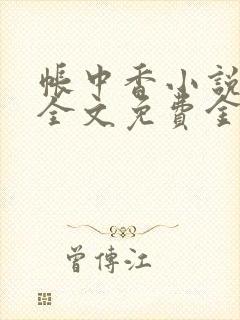 帳中香小說
全文免費全
曾傳江